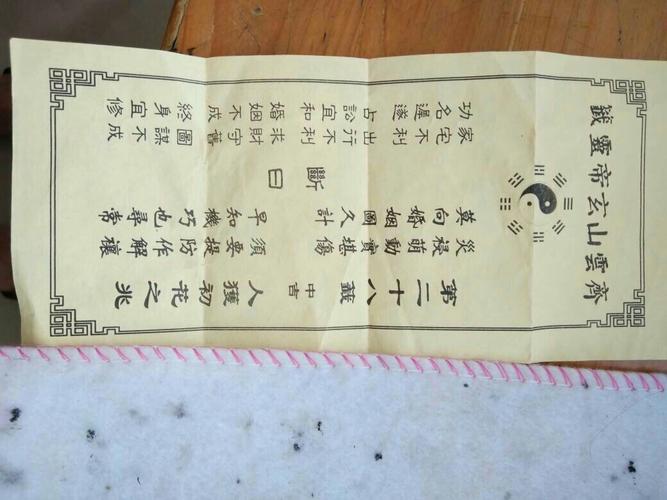 齊雲山玄帝靈籤
第二十八籤 中吉 人獲初花之兆
災禍萌動實堪傷 須要提防作解禳
莫向婚姻圖久計 早知機巧也尋常
斷曰
家宅不利 出行不利 求財守舊 圖謀不成
功名遲遂 占訟宜和 婚姻不成 終身宜修